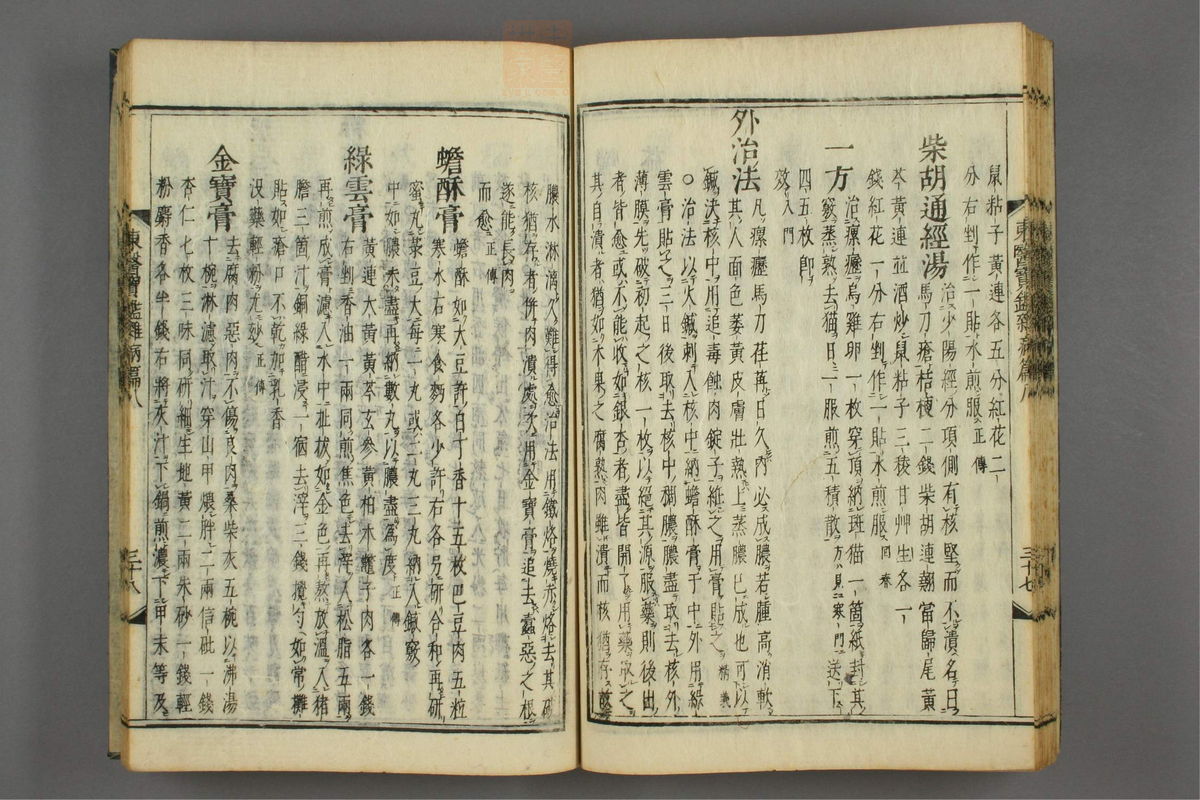 鼠粘子黃連各五分紅花二
分右剉作一貼水煎服正傳
柴胡通經湯治少陽經分項側有核堅而不潰名曰
馬刀瘡桔梗二錢柴胡連翹當歸尾黃
芩黃連並酒炒鼠粘子三稜甘艸生各一
錢紅花一分右剉作一貼水煎服同春
一方治瘰癧烏雞卵一枚穿頂納斑猫一箇紙封其
竅蒸熟去猫日二服煎五積散方見寒門送下
四五枚卽
效入門
外治法凡瘰癧馬刀荏苒日久內必成膿若腫高消軟
其人面色萎黃皮膚壯熱上蒸膿已成也可以
鍼決核中用追毒蝕肉錠子紝之用膏貼之精義
○治法以火鍼刺入核中納蟾酥膏于中外用綠
雲膏貼之三日後取去核中稠膿膿盡取去核外
薄膜先破初起之核一枚以絕其源服藥則後出
者皆愈或不能收如銀杏者盡皆開了用藥取之
其自潰者猶如木果之腐熟肉雖潰而核猶存故
東醫寶鑑雜病篇八
三十七
膿水淋漓久難得愈治法用鐵烙燒赤烙去其
核猶存者倂肉潰處次用金寶膏追去蠹惡之根
遂能長肉
而愈正傳
蟾酥膏蟾酥如大豆許白丁香十五枚巴豆肉五粒
寒水石寒食麪各少許右各另硏合和再硏
蜜丸菉豆大每一丸或二丸三丸納入鍼竅
中如膿未盡再納數丸以膿盡爲度正傳
綠雲膏黃連大黃黃芩玄參黃柏木鼈子肉各一錢
右剉香油一兩同煎焦色去滓入松脂五兩
再煎成膏濾入水中扯拔如金色再熬放溫入猪
膽三箇汁銅綠醋浸一宿去滓三錢攪勻如常攤
貼如瘡口不乾加乳香
沒藥輕粉尤妙正傳
金寶膏去腐肉惡肉不傷良肉桑柴灰五椀以沸湯
十椀淋濾取汁穿山甲煨胖二兩信砒一錢
杏仁七枚三味同硏細生地黃二兩朱砂一錢輕
粉麝香各半錢右將灰汁下鍋煎濃下甲末等及
東醫寶鑑雜病篇八
三十八